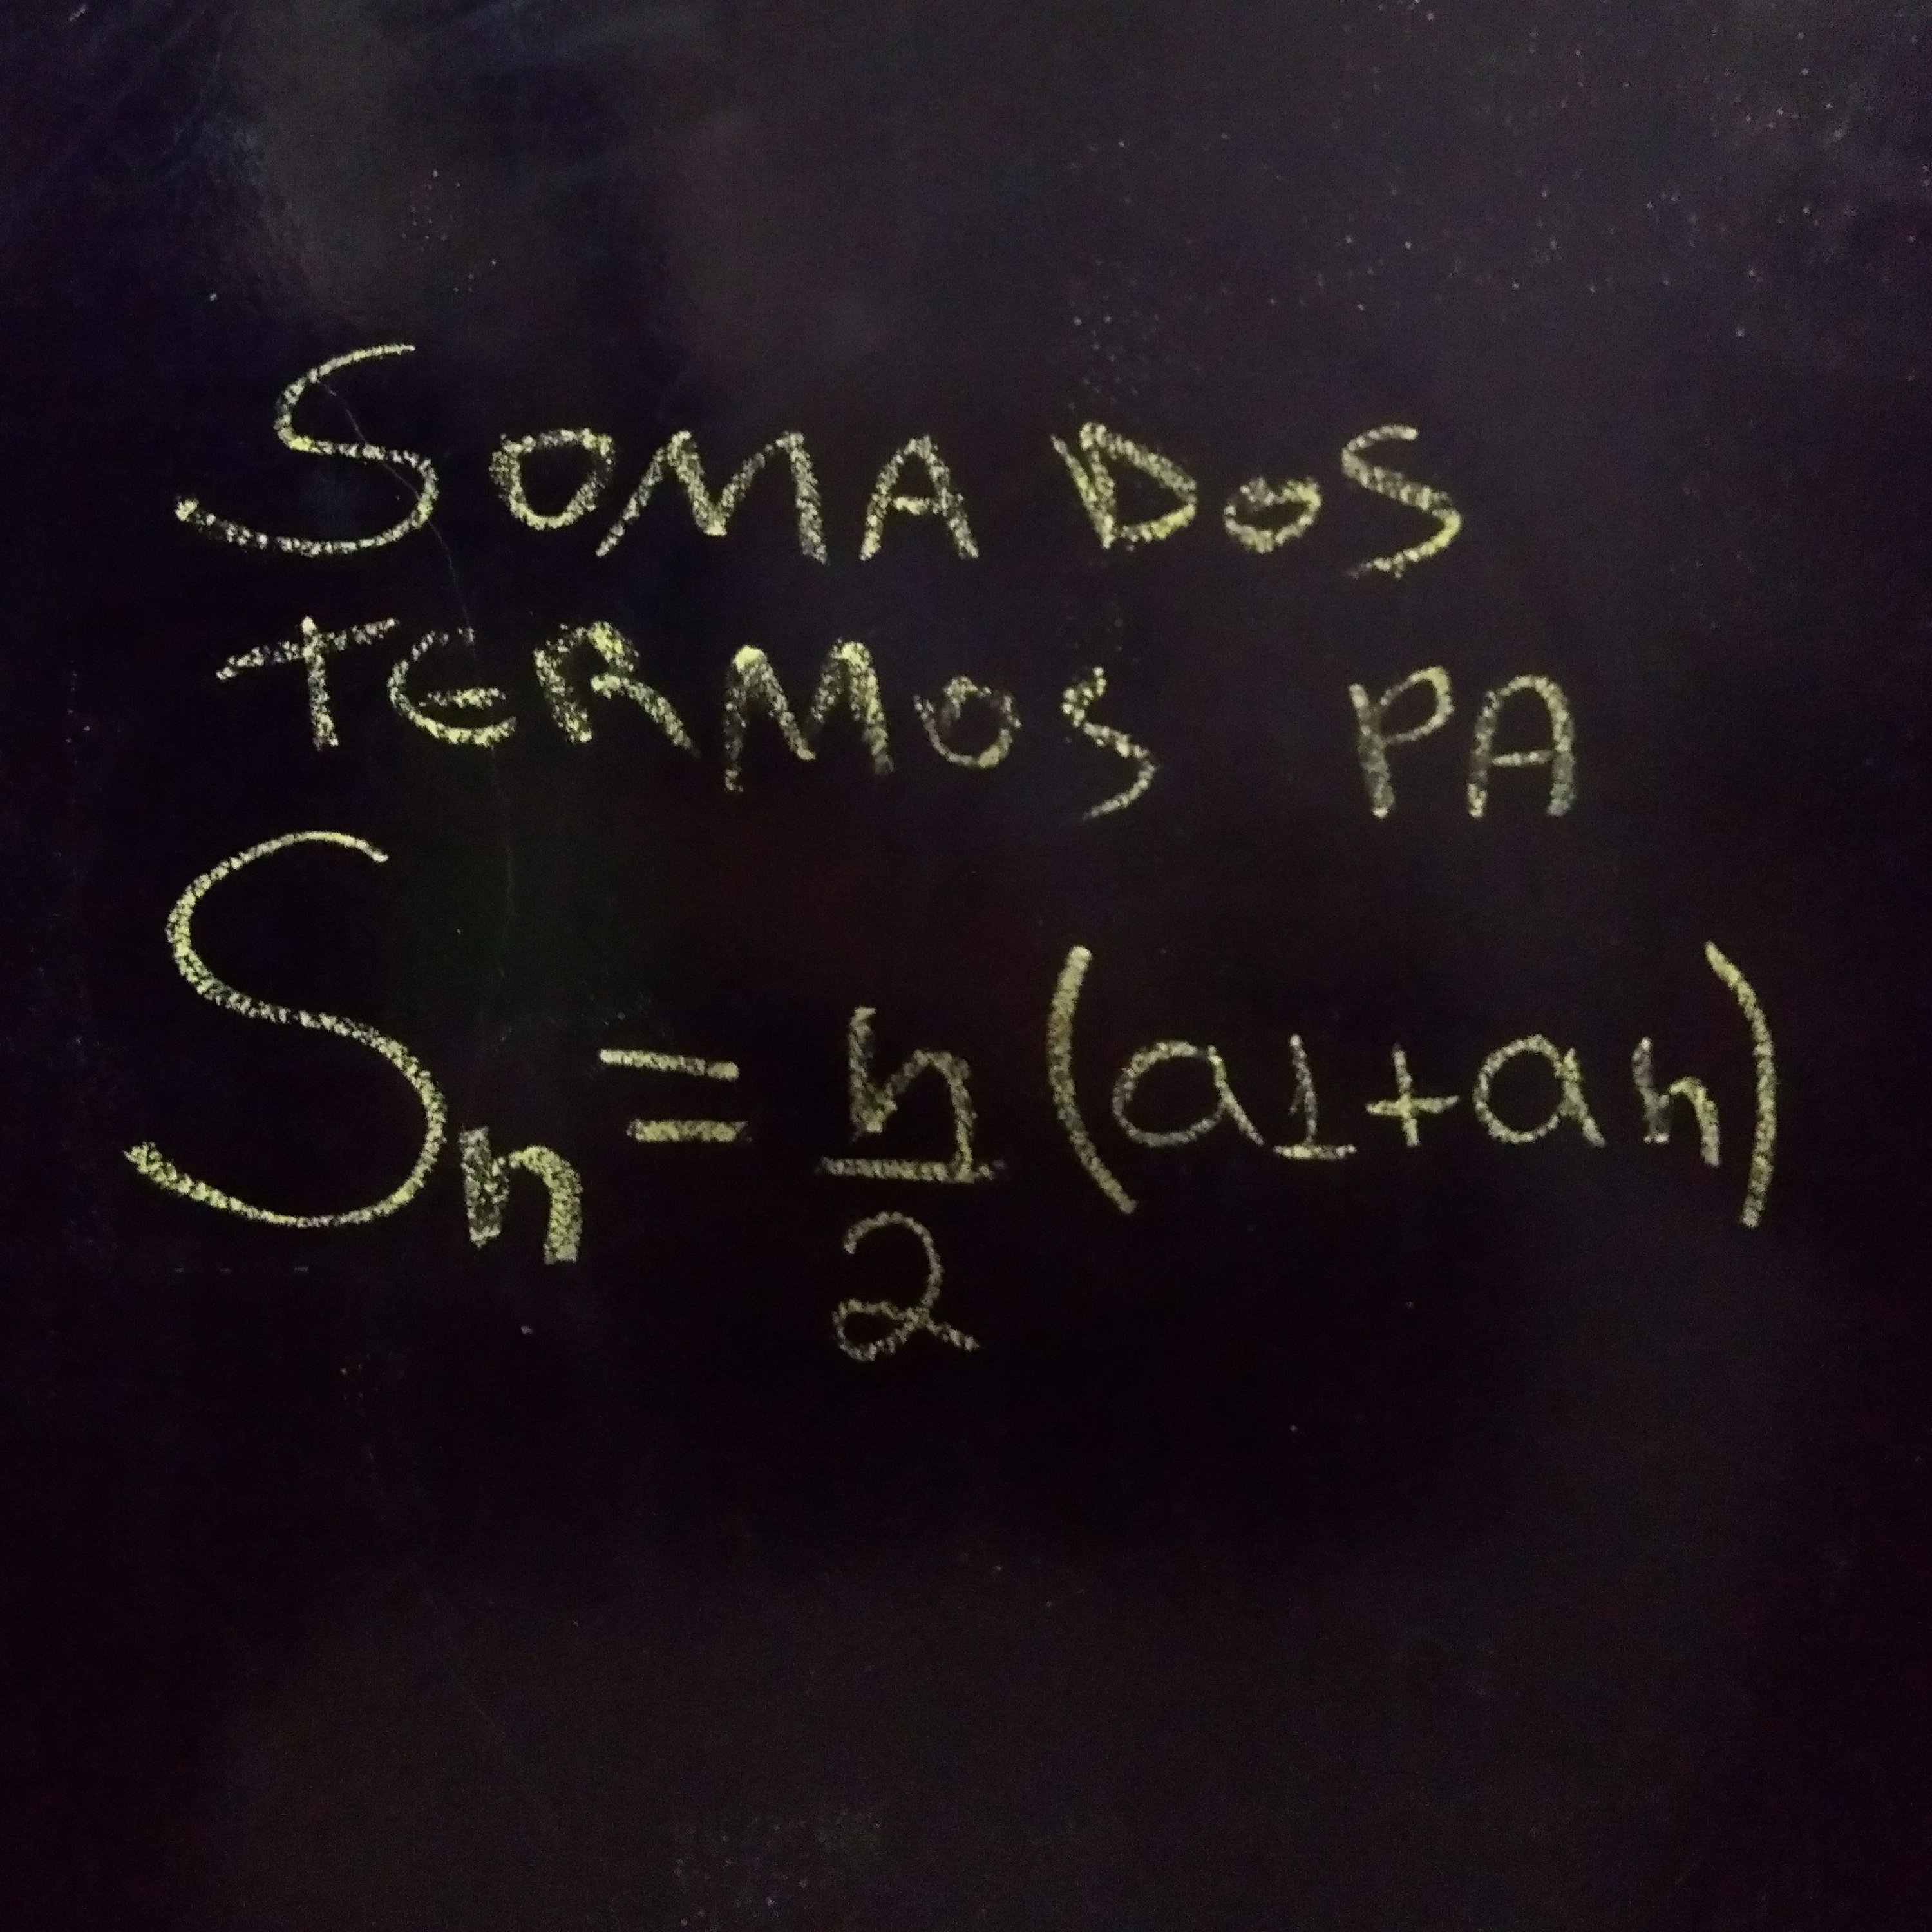 SOMA DOS
TERMOS PA
Sn = n/2 (a1+an)